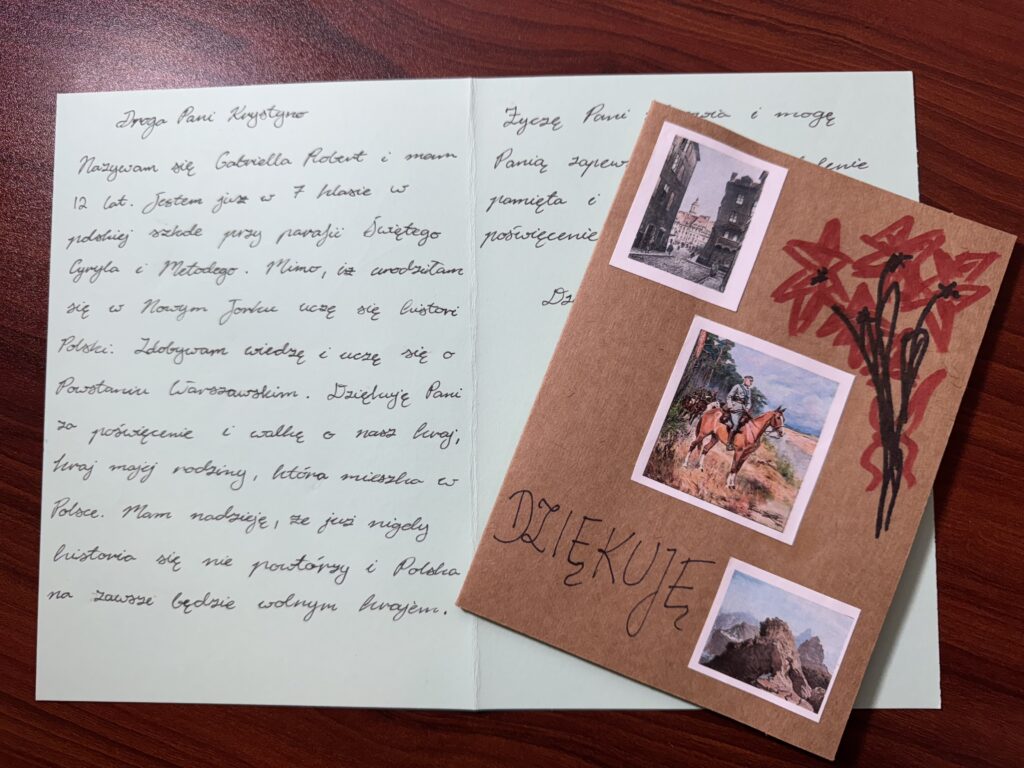 Droga Pani Krystyno
Nazywam się Gabriella Robert i mam
12 lat. Jestem już w 7 klasie w
polskiej szkole przy parafii Świętego
Cyryla i Metodego. Mimo, iż urodziłam
się w Nowym Jorku uczę się histori
Polski. Zdobywam wiedzę i uczę się o
Powstaniu Warszawskim. Dziękuję Pani
za poświęcenie i walkę o nasz kraj,
kraj mojej rodziny, która mieszka w
Polsce. Mam nadzieję, że już nigdy
historia się nie powtórzy i Polska
na zawsze będzie wolnym krajem.
Życzę Pani i mogę
Panią
pamięta i
poświęcenie
DZIĘKUJĘ